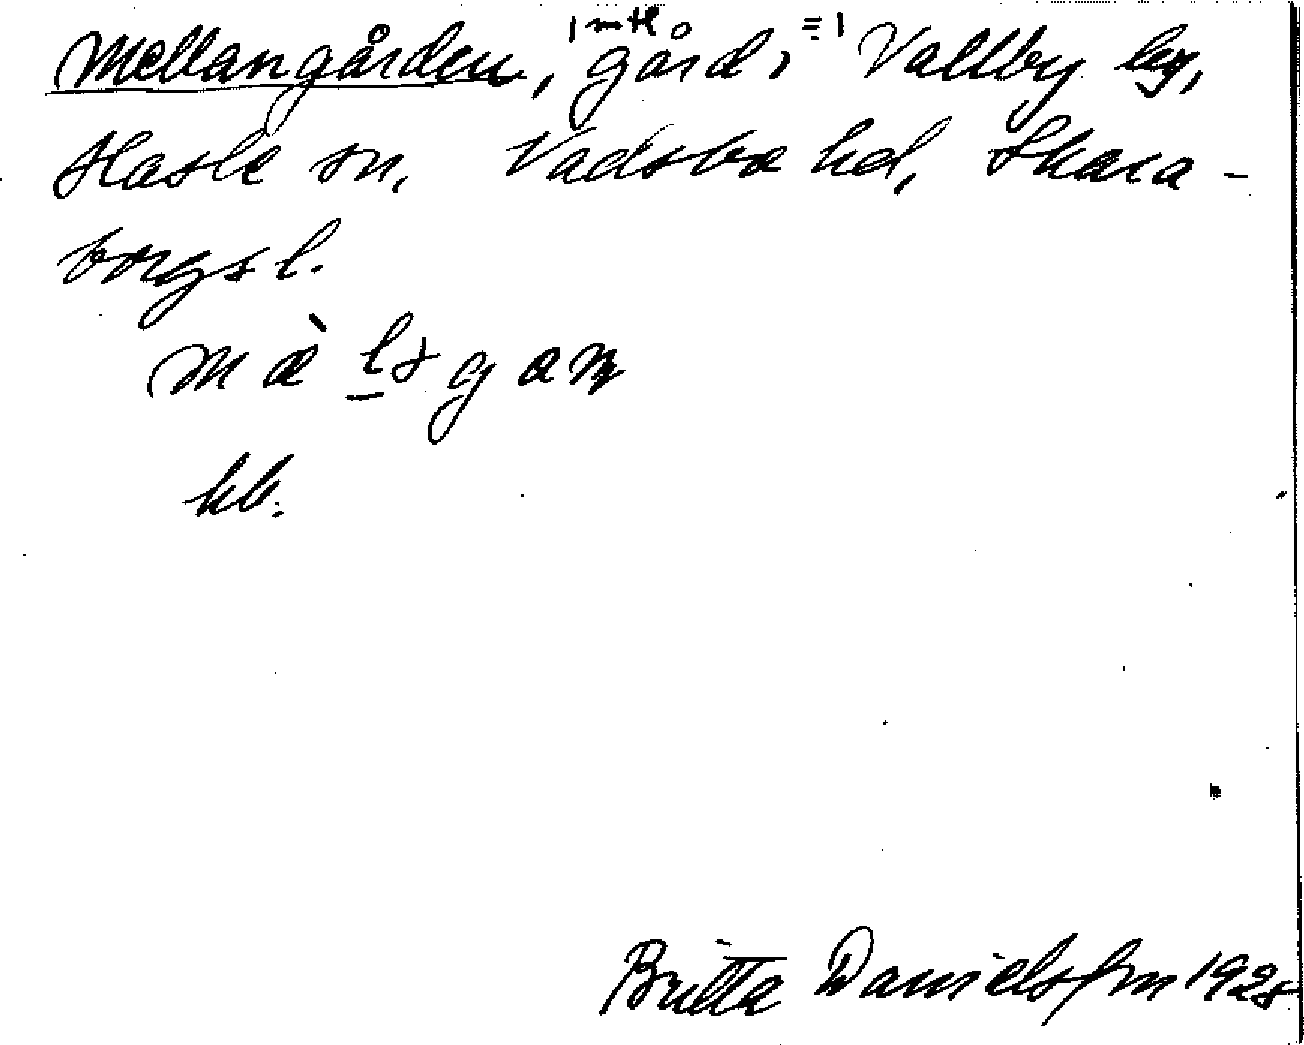 1 mtl = 1
Mellangården, gård i Vallby by,
Hasle sn, Vadsbo hd, Skara-
borgs l.
mæ̀lsgan
kb.
Britta Danielsson 1928